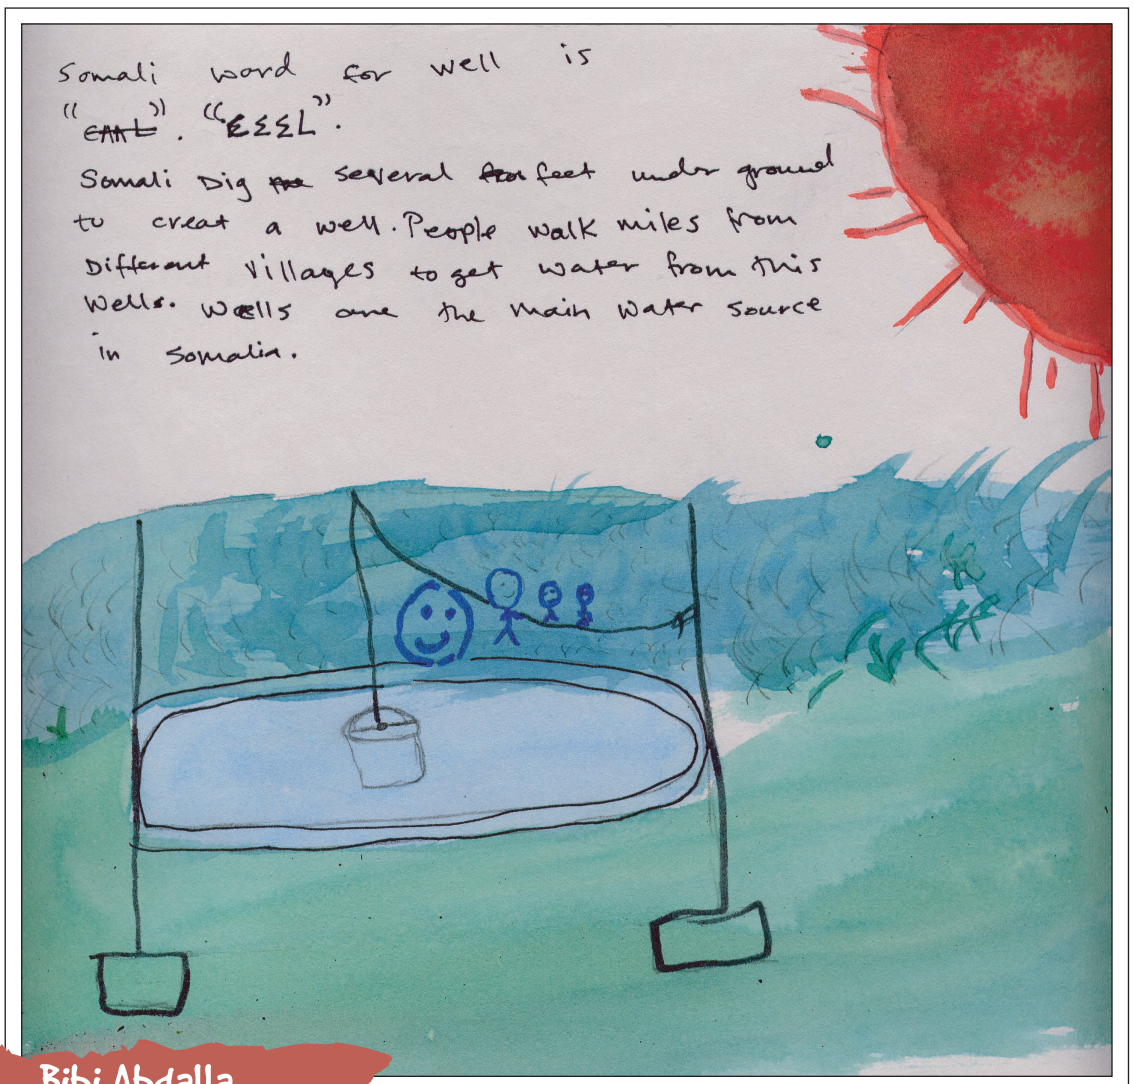 Somali word for well is
"EAAL". "EEEL".
Somali Dig several feet under ground
to creat a well. People walk miles from
Different villages to get water from this
Wells. Wells are the main water source
in Somalia.
Bibi Abdalla